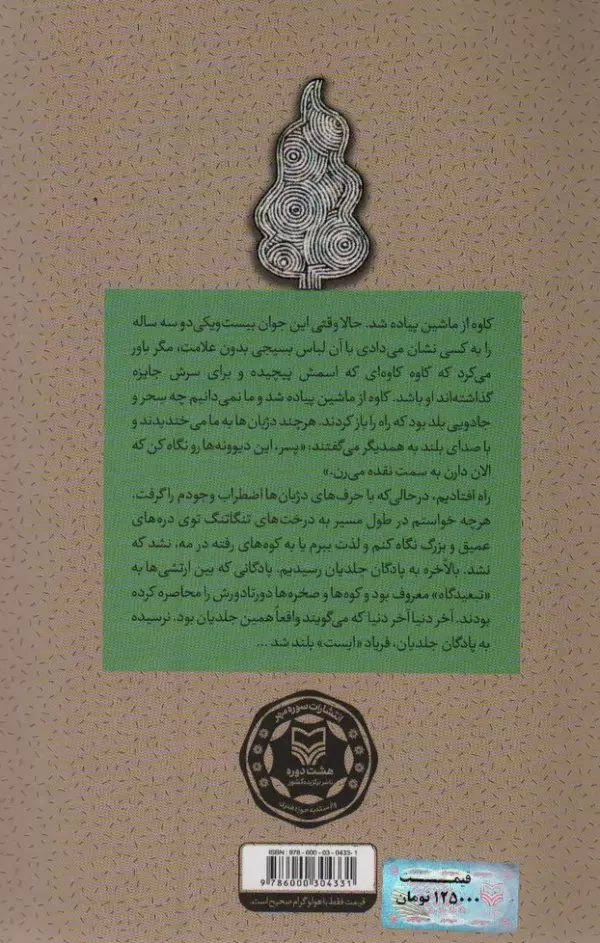 کاوه از ماشین پیاده شد. حالا وقتی این جوان بیست‌ویکی‌دو سه ساله
را به کسی نشان می‌دادی با آن لباس بسیجی بدون علامت، مگر باور
می‌کرد که کاوه کاوه‌ای که اسمش پیچیده و برای سرش جایزه
گذاشته‌اند او باشد. کاوه از ماشین پیاده شد و ما نمی‌دانیم چه سحر و
جادویی بلد بود که راه را باز کردند. هرچند دژبان‌ها به ما می‌خندیدند و
با صدای بلند به همدیگر می‌گفتند: «پسر، این دیوونه‌ها رو نگاه کن که
الان دارن به سمت نقده می‌رن.»
راه افتادیم، درحالی‌که با حرف‌های دژبان‌ها اضطراب وجودم را گرفت.
هرچه خواستم در طول مسیر به درخت‌های تنگاتنگ توی دره‌های
عمیق و بزرگ نگاه کنم و لذت ببرم یا به کوه‌های رفته در مه، نشد که
نشد. بالاخره به پادگان جلدیان رسیدیم. پادگانی که بین ارتشی‌ها به
«تبعیدگاه» معروف بود و کوه‌ها و صخره‌ها دورتادورش را محاصره کرده
بودند. آخر دنیا آخر دنیا که می‌گویند واقعاً همین جلدیان بود. نرسیده
به پادگان جلدیان، فریاد «ایست» بلند شد ...
انتشارات سوره مهر
هشت دوره
ناشر برگزیده کشور
وابسته به حوزه هنری
ISBN: 978-600-03-0433-1
9 786000 304331
قیمت فقط با هولوگرام صحیح است.
قیمت
۱۲۵۰۰۰ تومان